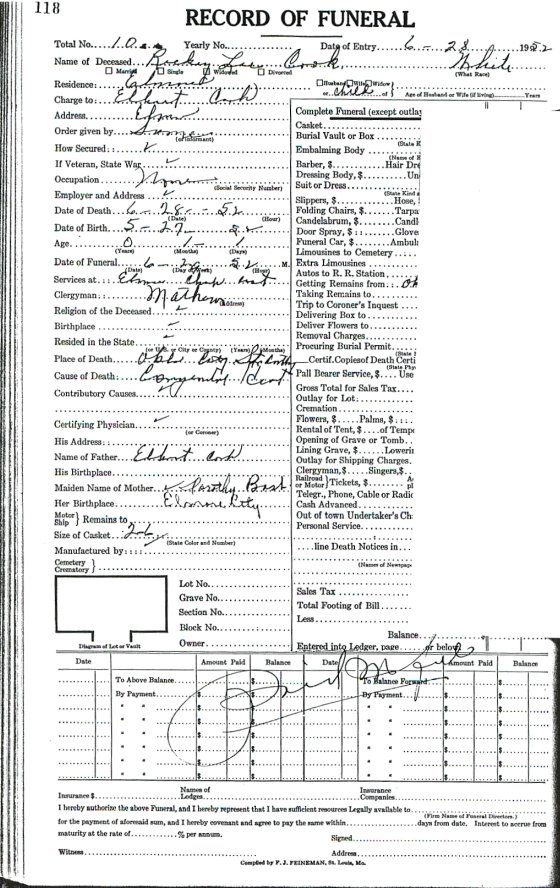 118
RECORD OF FUNERAL
Total No. 10 Yearly No. Date of Entry 6-28 1952
Name of Deceased Lee Cook White
Married Single Widowed Divorced (What Race)
Residence: Elmore Husband Wife Widow or child of Age of Husband or Wife (if living) Years
Charge to: Cook
Address Elmore
Order given by Same
(or Informant)
How Secured: ✓
If Veteran, State War ✓
Occupation None
(Social Security Number)
Employer and Address ✓
Date of Death 6-28-52
(Date) (Hour)
Date of Birth 5-27-52
Age 0 1 1
(Years) (Months) (Days)
Date of Funeral 6 52 M.
(Date) (Day of Week) (Hour)
Services at: Elmore
Clergyman: Mathews
(Address)
Religion of the Deceased ✓
Birthplace ✓
Resided in the State ✓
(or U. S. or City or County) (Years) (Months)
Place of Death Okla City St Anthony
Cause of Death: Congenital
Contributory Causes
Certifying Physician ✓
(or Coroner)
His Address:
Name of Father Cook
His Birthplace
Maiden Name of Mother Dorothy
Her Birthplace Elmore City
Motor Ship } Remains to
Size of Casket 2-6
(State Color and Number)
Manufactured by:
Cemetery Crematory }
Complete Funeral (except outlay
Casket
Burial Vault or Box
(State K
Embalming Body
(Name of E
Barber, $ Hair Dre
Dressing Body, $ Un
Suit or Dress
(State Kind a
Slippers, $ Hose,
Folding Chairs, $ Tarpa
Candelabrum, $ Candl
Door Spray, $ Glove
Funeral Car, $ Ambul
Limousines to Cemetery
Extra Limousines
Autos to R. R. Station
Getting Remains from: Ok
Taking Remains to
Trip to Coroner's Inquest
Delivering Box to
Deliver Flowers to
Removal Charges
Procuring Burial Permit
(State
Certif. Copies of Death Certi
(State Phy
Pall Bearer Service, $ Use
Gross Total for Sales Tax
Outlay for Lot:
Cremation
Flowers, $ Palms, $
Rental of Tent, $ of Tempo
Opening of Grave or Tomb
Lining Grave, $ Loweri
Outlay for Shipping Charges
Clergyman, $ Singers, $
Railroad or Motor } Tickets, $ A pl
Telegr., Phone, Cable or Radio
Cash Advanced
Out of town Undertaker's Ch
Personal Service
line Death Notices in
(Names of Newspap
Sales Tax
Total Footing of Bill
Less
Balance
Entered into Ledger, page or below
Lot No.
Grave No.
Section No.
Block No.
Owner
Diagram of Lot or Vault
Date Amount Paid Balance Date Amount Paid Balance
To Above Balance $ To Balance Forward $
By Payment $ By Payment $
" " $ " " $
" " $ " " $
" " $ " " $
" " $ " " $
" " $ " " $
Paid
Insurance $ Names of Lodges Insurance Companies
I hereby authorize the above Funeral, and I hereby represent that I have sufficient resources Legally available to
(Firm Name of Funeral Directors.)
for the payment of aforesaid sum, and I hereby covenant and agree to pay the same within days from date. Interest to accrue from
maturity at the rate of % per annum. Signed
Witness Address
Compiled by F. J. FEINEMAN, St. Louis, Mo.